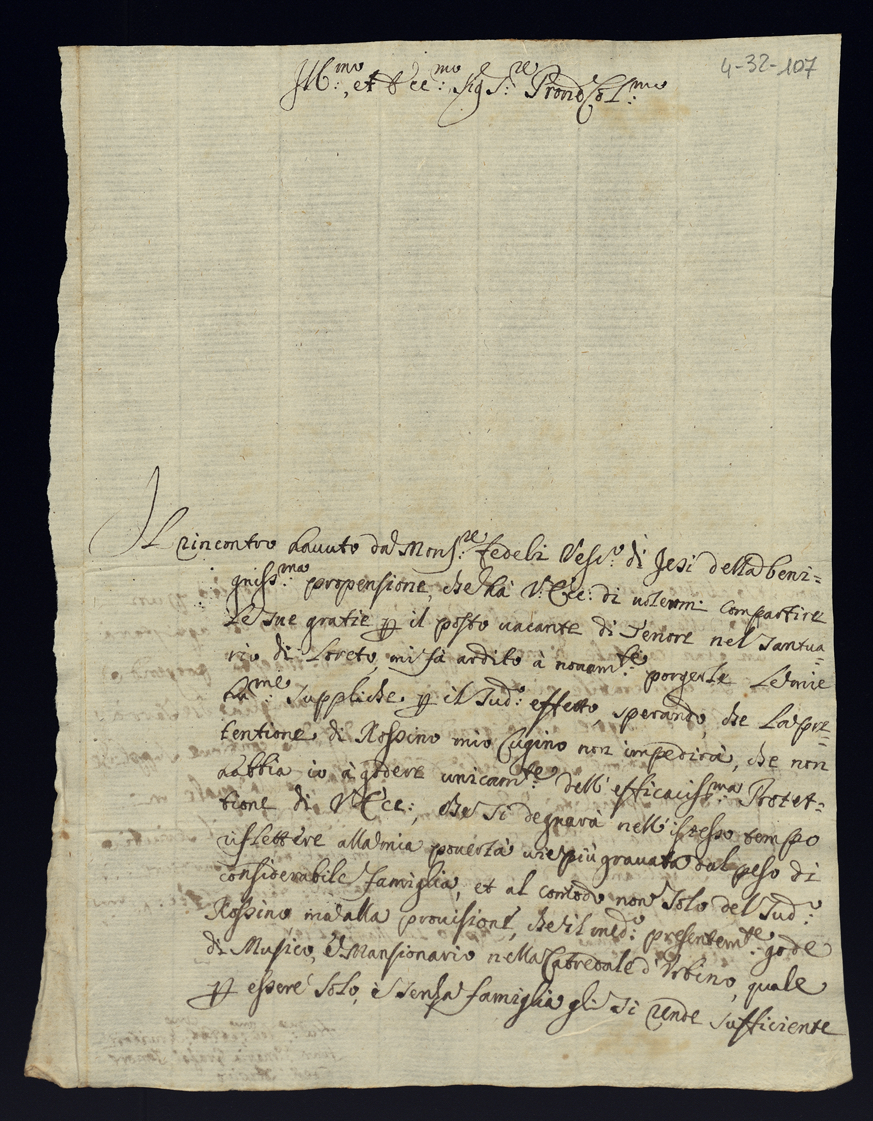 4-32-107
Ill:mo, et Ecc:mo Sig.r S:re Prone Col:mo
Il rincontro hauuto da Mons:re Fedeli Vesc:o di Jesi della beni=
gniss:ma propensione, che hà V: Ecc: di uolermi compartire
le sue gratie p il posto uacante di Tenore nel Santua=
rio di Loreto, mi fà ardito à nouam:te porgerle le mie
hu:me suppliche p il sud:o effetto, sperando, che la pre=
tentione di Rossino mio Cugino non impedirà, che non
habbia io à godere unicam:te dell'efficaciss:ma Protet=
tione di V: Ecc:, che si degnarà nell'istesso tempo
riflettere alla mia pouertà uie più grauata dal peso di
considerabile famiglia, et al comodo non solo del sud:o
Rossino mà alla prouisione, che il med:o presentem:te gode
di Musico, e Mansionario nella Catredale d'Vrbino, quale
p essere solo, e senza famiglia gli si rende sufficiente